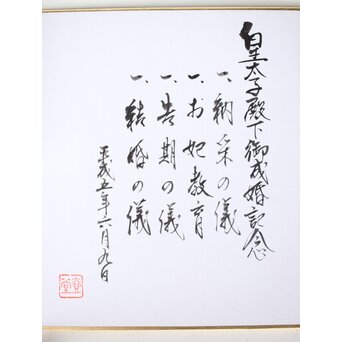 皇太子殿下御成婚記念
一、納采の儀
一、お妃教育
一、告期の儀
一、結婚の儀
平成五年六月九日